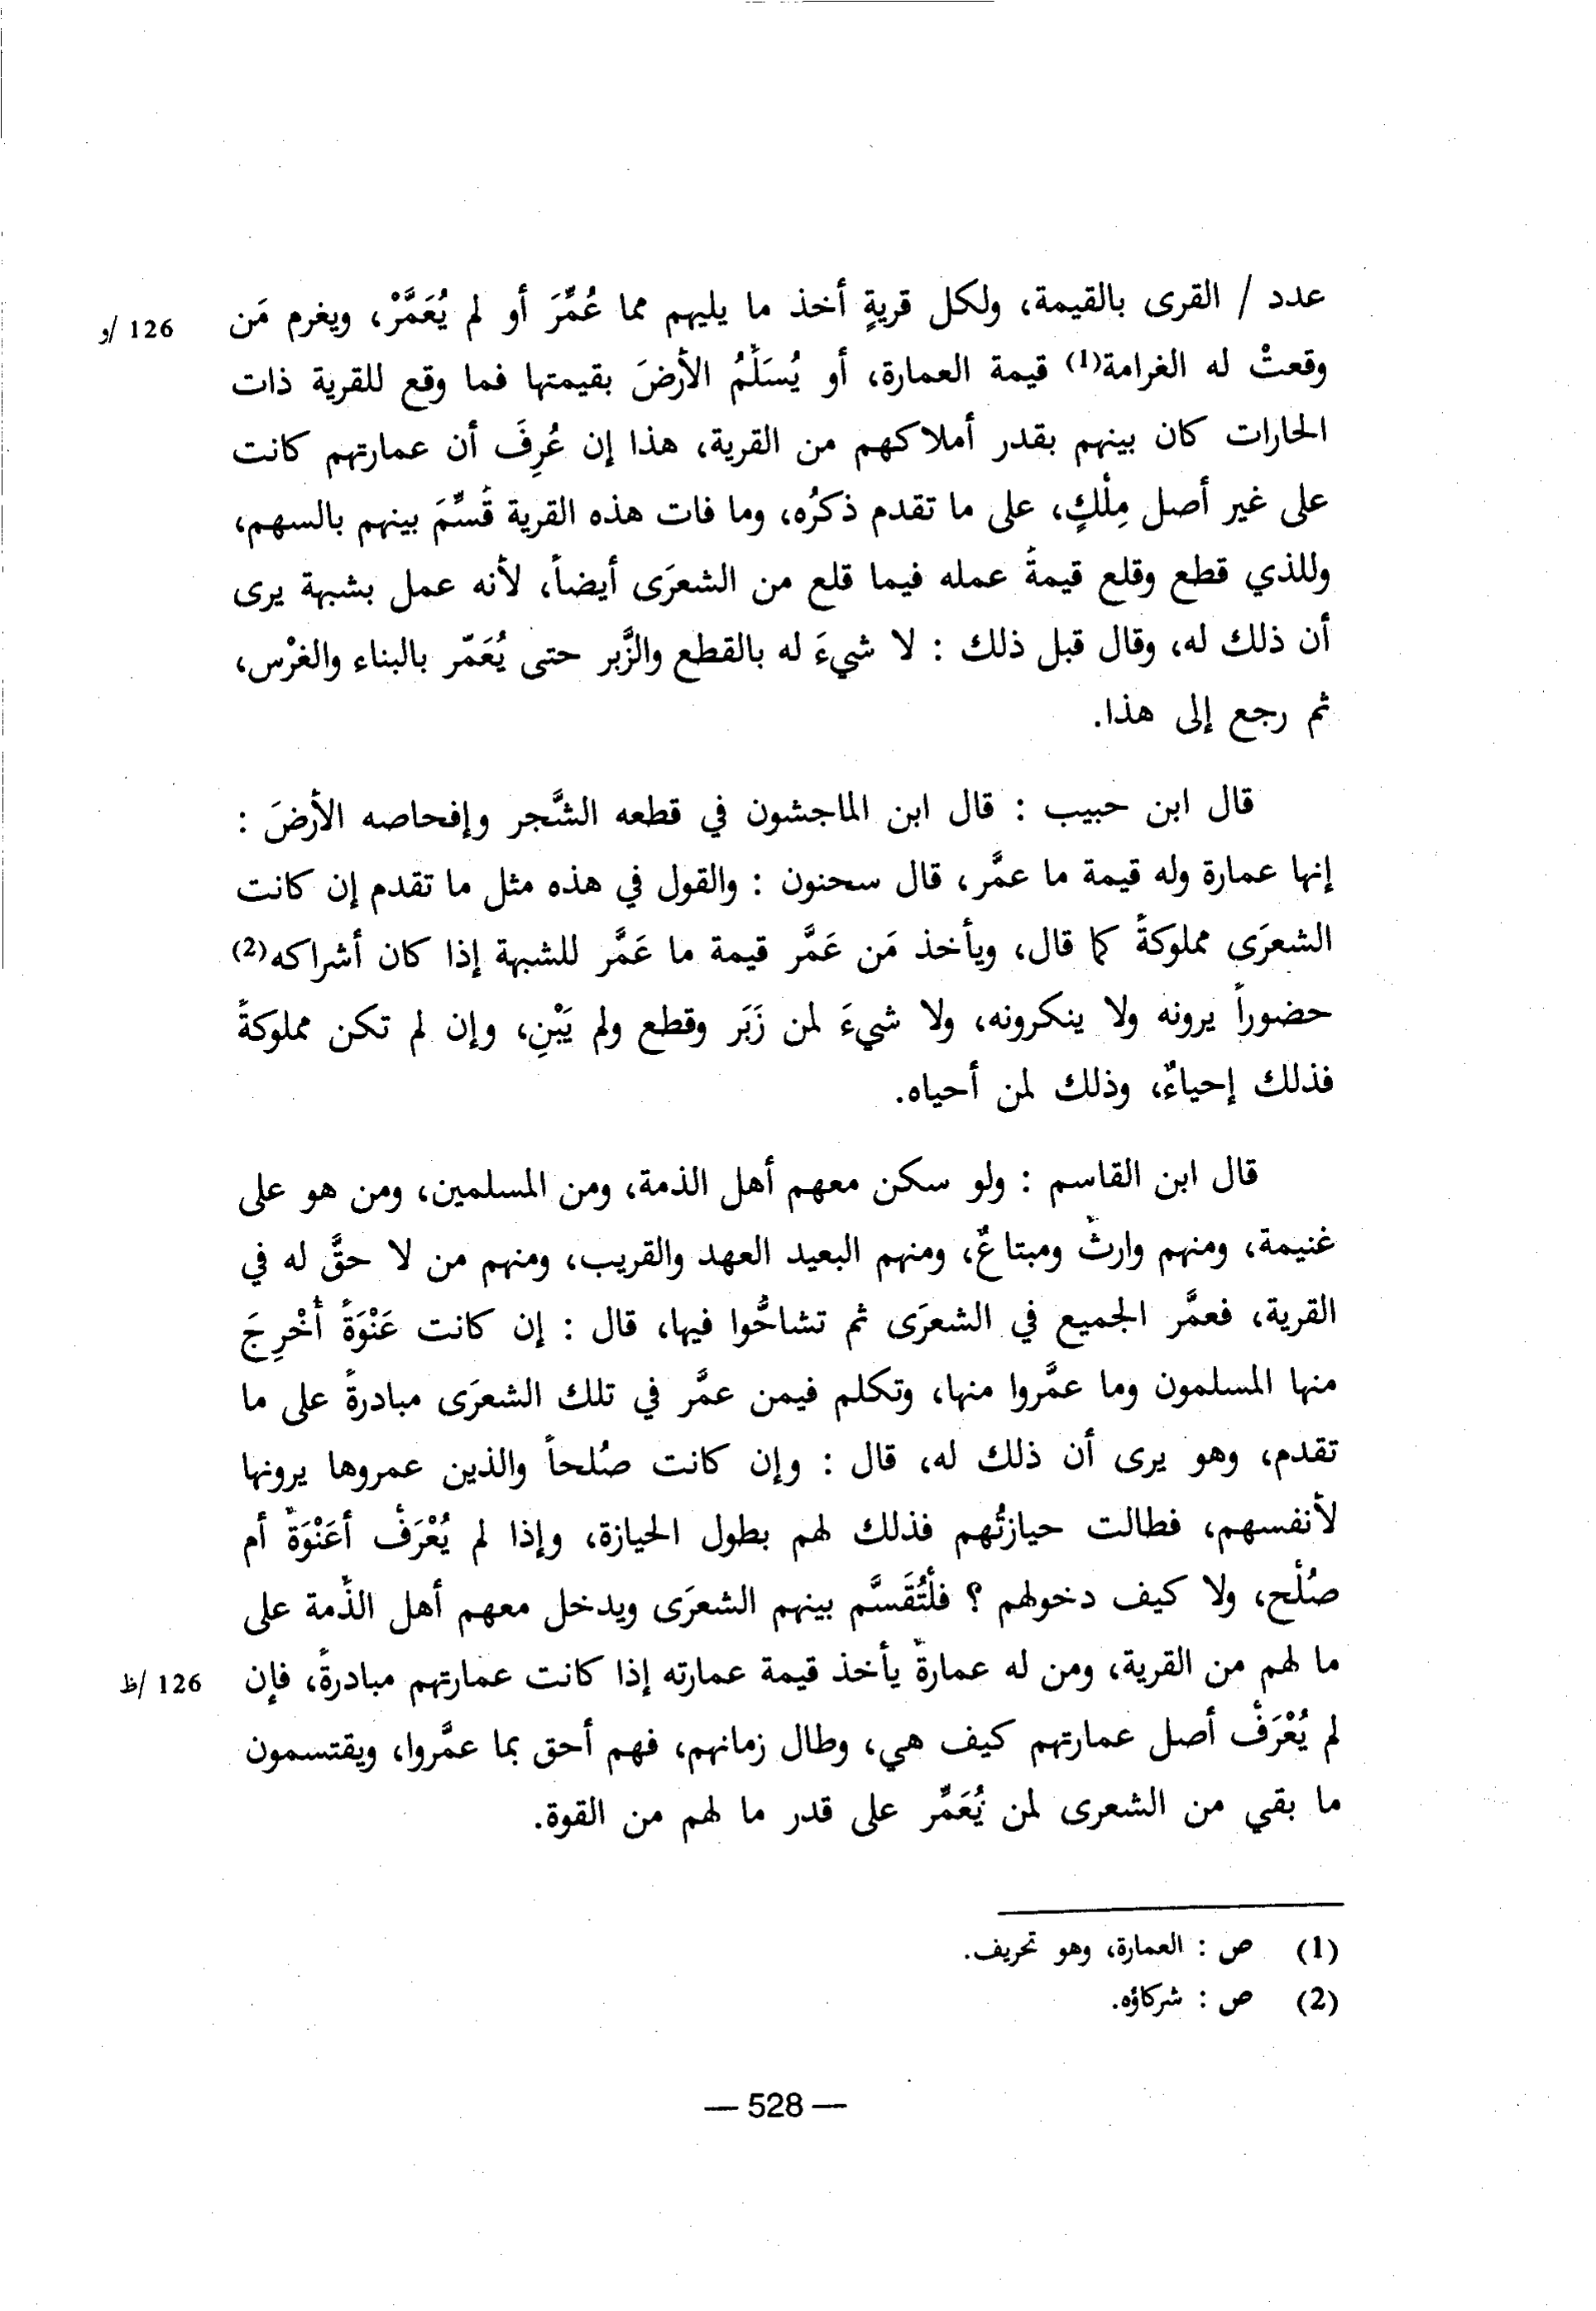 عدد / القرى بالقيمة، ولكل قريةٍ أخذ ما يليهم مما عُمِّرَ أو لم يُعَمَّرْ، ويغرم مَن 126 /و
وقعتْ له الغرامة(1) قيمة العمارة، أو يُسَلِّمُ الأرضَ بقيمتها فما وقع للقرية ذات
الحارات كان بينهم بقدر أملاكهم من القرية، هذا إن عُرِفَ أن عمارتهم كانت
على غير أصل مِلْكٍ، على ما تقدم ذكرُه، وما فات هذه القرية قُسِّمَ بينهم بالسهم،
وللذي قطع وقلع قيمةُ عمله فيما قلع من الشعرَى أيضاً، لأنه عمل بشبهة يرى
أن ذلك له، وقال قبل ذلك : لا شيءَ له بالقطع والزَّبر حتى يُعَمّر بالبناء والغرْس،
ثم رجع إلى هذا.
قال ابن حبيب : قال ابن الماجشون في قطعه الشَّجر وإفحاصه الأرضَ :
إنها عمارة وله قيمة ما عمَّر، قال سحنون : والقول في هذه مثل ما تقدم إن كانت
الشعرَى مملوكةً كما قال، ويأخذ مَن عَمَّر قيمة ما عَمَّر للشبهة إذا كان أشراكه(2)
حضوراً يرونه ولا ينكرونه، ولا شيءَ لمن زَبَر وقطع ولم يَبْنِ، وإن لم تكن مملوكةً
فذلك إحياءٌ، وذلك لمن أحياه.
قال ابن القاسم : ولو سكن معهم أهل الذمة، ومن المسلمين، ومن هو على
غنيمة، ومنهم وارثٌ ومبتاعٌ، ومنهم البعيد العهد والقريب، ومنهم من لا حقَّ له في
القرية، فعمَّر الجميع في الشعرَى ثم تشاحُّوا فيها، قال : إن كانت عَنْوَةً أُخْرِجَ
منها المسلمون وما عمَّروا منها، وتكلم فيمن عمَّر في تلك الشعرَى مبادرةً على ما
تقدم، وهو يرى أن ذلك له، قال : وإن كانت صُلحاً والذين عمروها يرونها
لأنفسهم، فطالت حيازتُهم فذلك لهم بطول الحيازة، وإذا لم يُعْرَفْ أعَنْوَةٌ أم
صُلْح، ولا كيف دخولهم ؟ فلْتُقَسَّم بينهم الشعرَى ويدخل معهم أهل الذِّمة على
ما لهم من القرية، ومن له عمارةٌ يأخذ قيمة عمارته إذا كانت عمارتهم مبادرةً، فإن 126 /ظ
لم يُعْرَفْ أصل عمارتهم كيف هي، وطال زمانهم، فهم أحق بما عمَّروا، ويقتسمون
ما بقي من الشعرى لمن يُعَمِّر على قدر ما لهم من القوة.
(1) ص : العمارة، وهو تحريف.
(2) ص : شركاؤه.
— 528 —